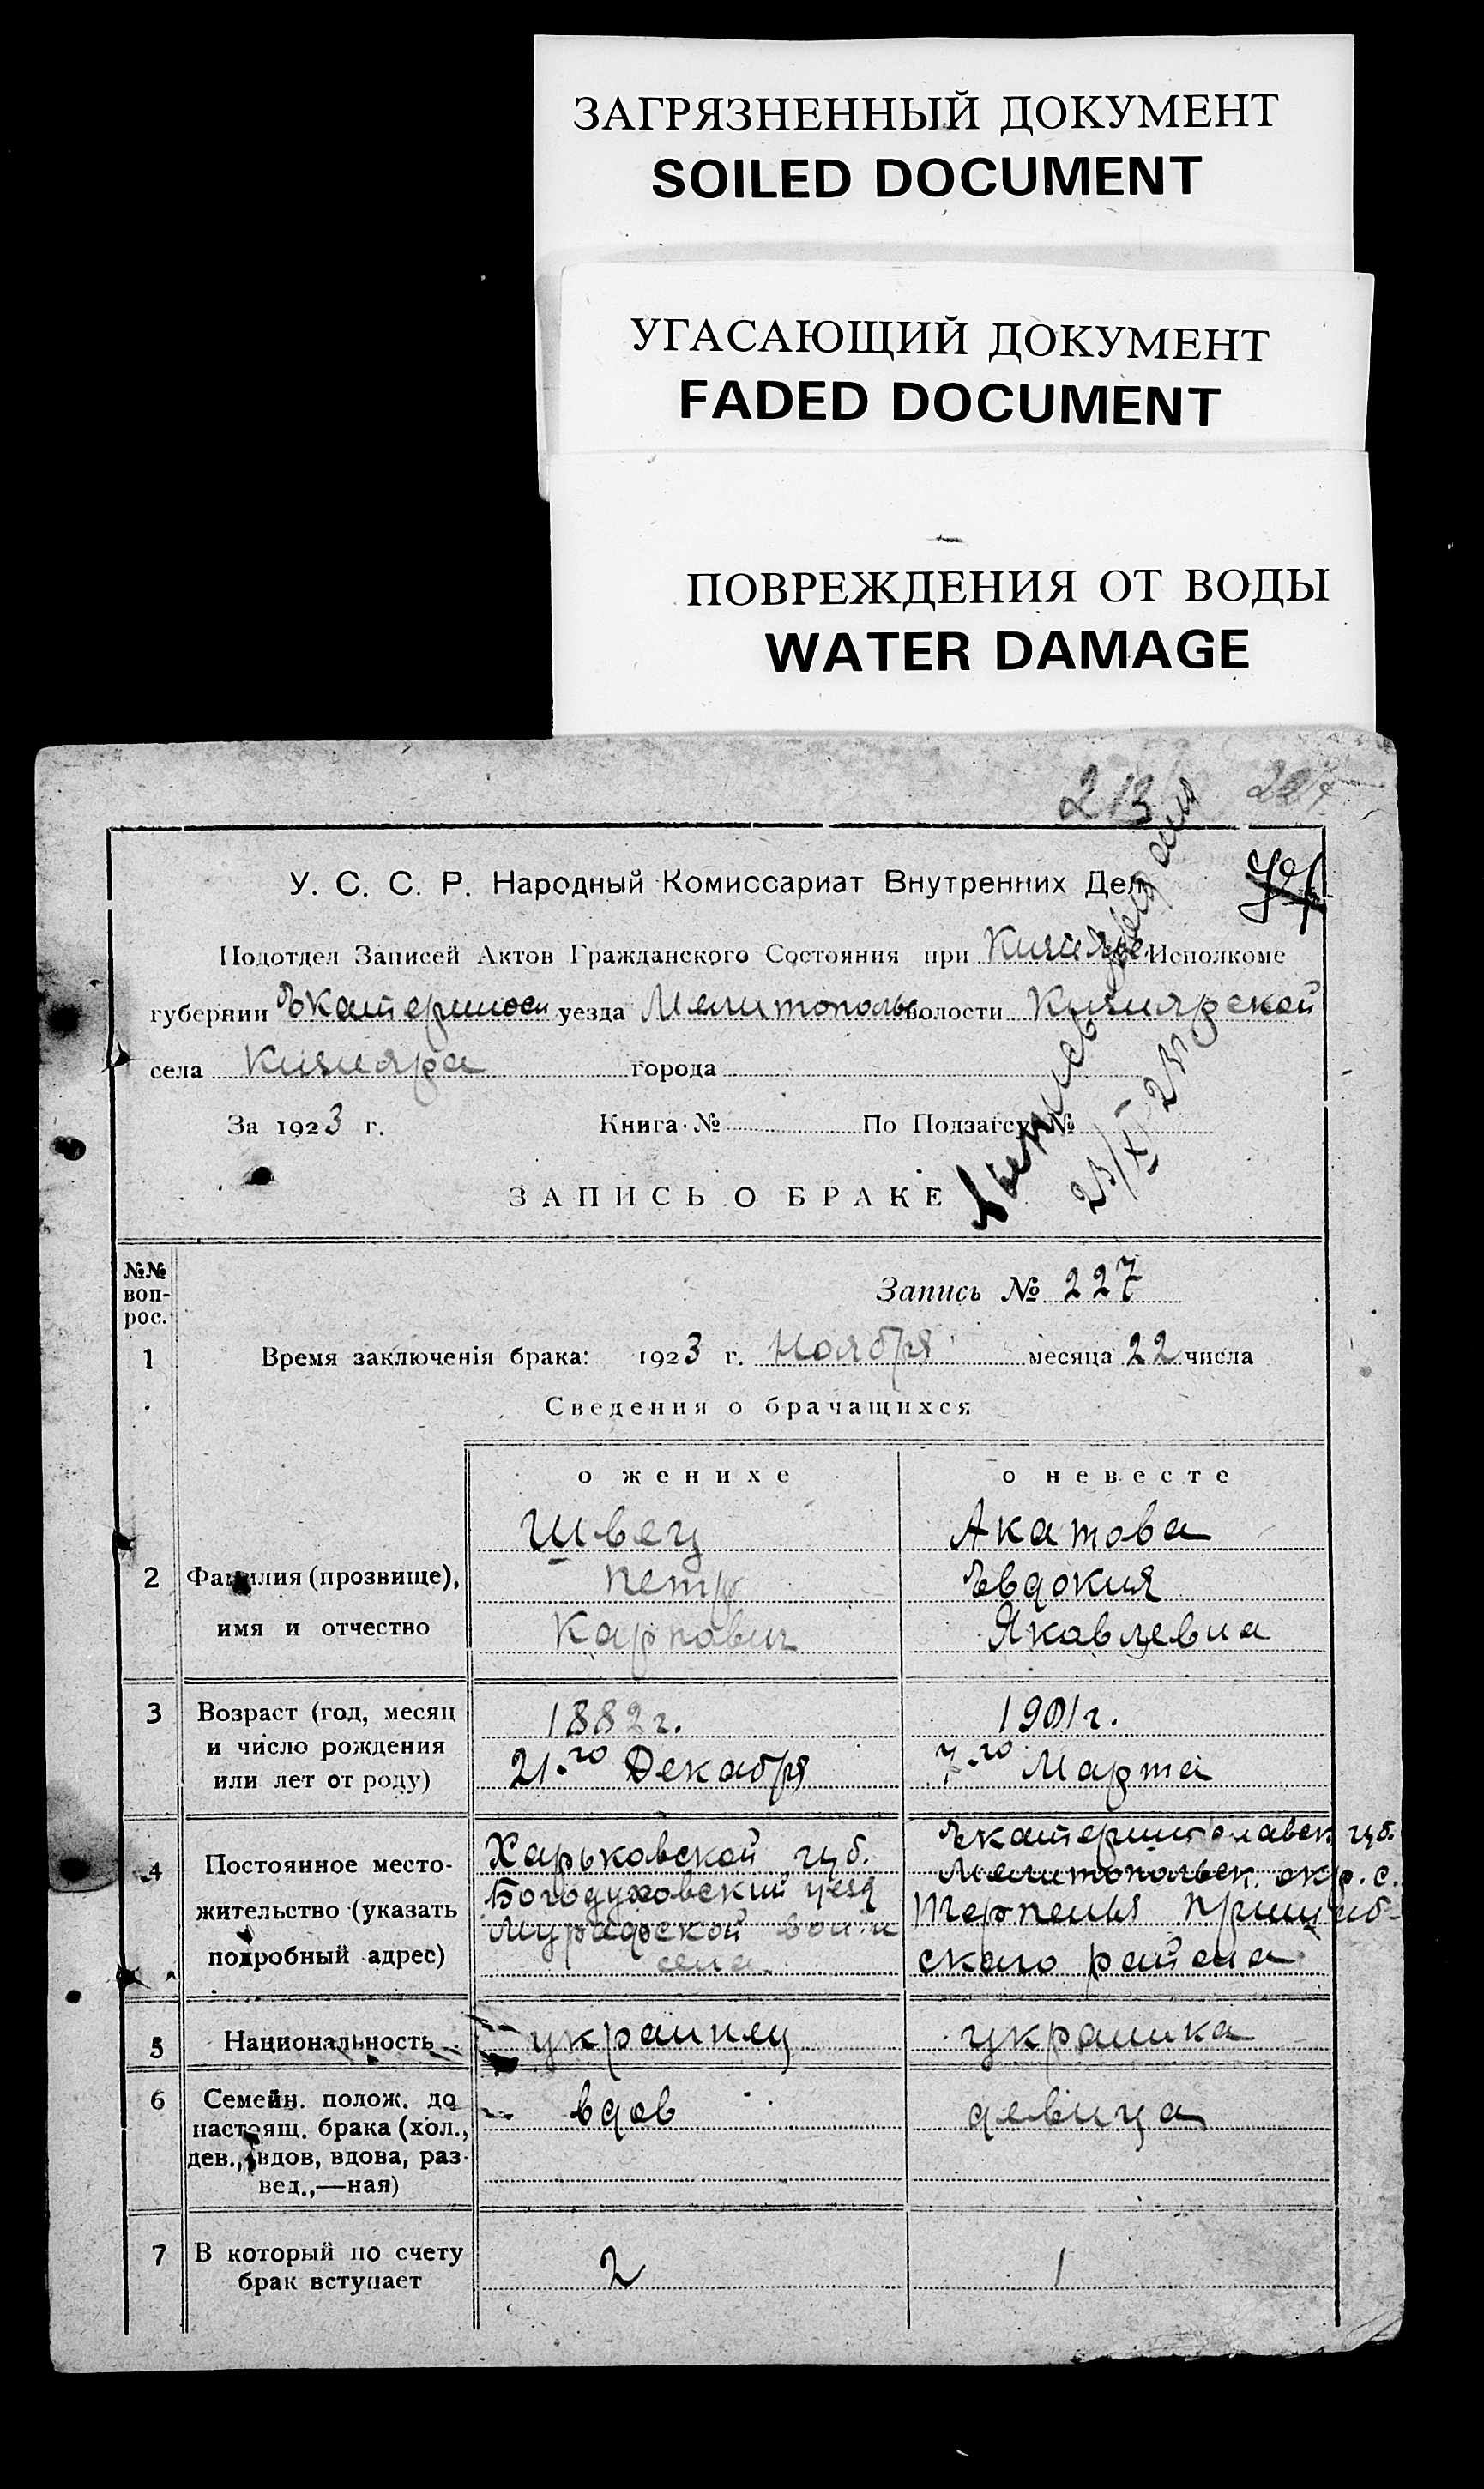 ЗАГРЯЗНЕННЫЙ ДОКУМЕНТ
SOILED DOCUMENT
УГАСАЮЩИЙ ДОКУМЕНТ
FADED DOCUMENT
ПОВРЕЖДЕНИЯ ОТ ВОДЫ
WATER DAMAGE
213 227
У. С. С. Р. Народный Комиссариат Внутренних Дел
Подотдел Записей Актов Гражданского Состояния при Исполкоме
губернии Екатеринос уезда Мелитополь волости Кизиярской
села Кизияра города
За 1923 г. Книга № По Подзагсу №
23/XI 23 г.
ЗАПИСЬ О БРАКЕ
№№ воп-рос.
Запись № 227
1 Время заключенія брака: 1923 г. Ноября месяца 22 числа
Сведения о брачащихся
о женихе о невесте
Швец Акатова
2 Фамилия (прозвище), Петр Евдокия
имя и отчество Карпович Яковлевна
3 Возраст (год, месяц 1882 г. 1901 г.
и число рождения 21-го Декабря 7-го Марта
или лет от роду)
4 Постоянное место- Харьковской губ. Екатеринославск губ.
жительство (указать Богодуховский уезд Мелитопольск. окр. с.
подробный адрес) Мурафской вол. и Терпенья Пришиб-
села ского района
5 Национальность украинец украинка
6 Семейн. полож. до вдов девица
настоящ. брака (хол.,
дев., вдов, вдова, раз-
вед.,—ная)
7 В который по счету 2 1
брак вступает